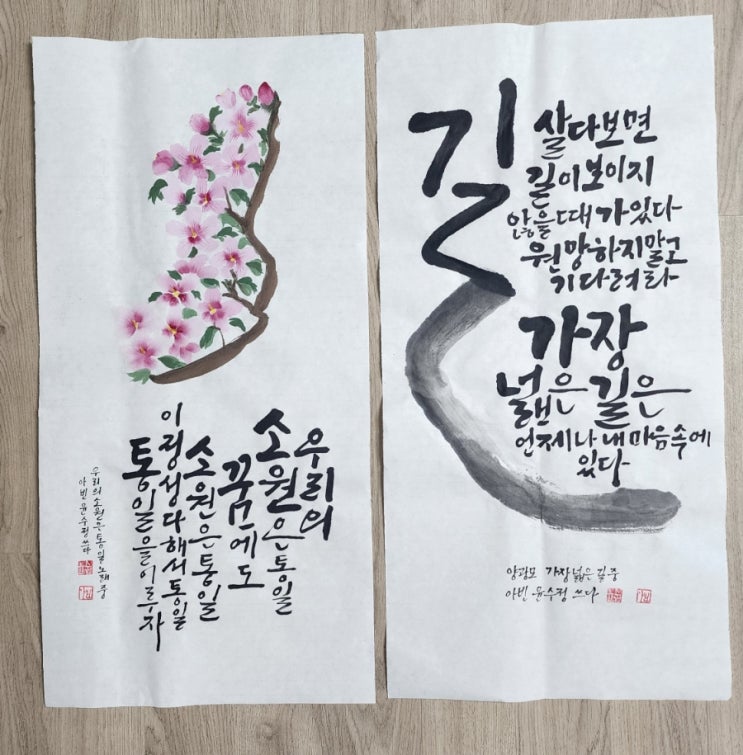 우리의
소원은통일
꿈에도
소원은통일
이정성다해서통일
통일을이루자
우리의소원은통일노래중
아빈윤수정쓰다
길
살다보면
길이보이지
않을때가있다
원망하지말고
기다려라
가장
넓은길은
언제나내마음속에
있다
양광모 가장넓은길중
아빈 윤수정 쓰다